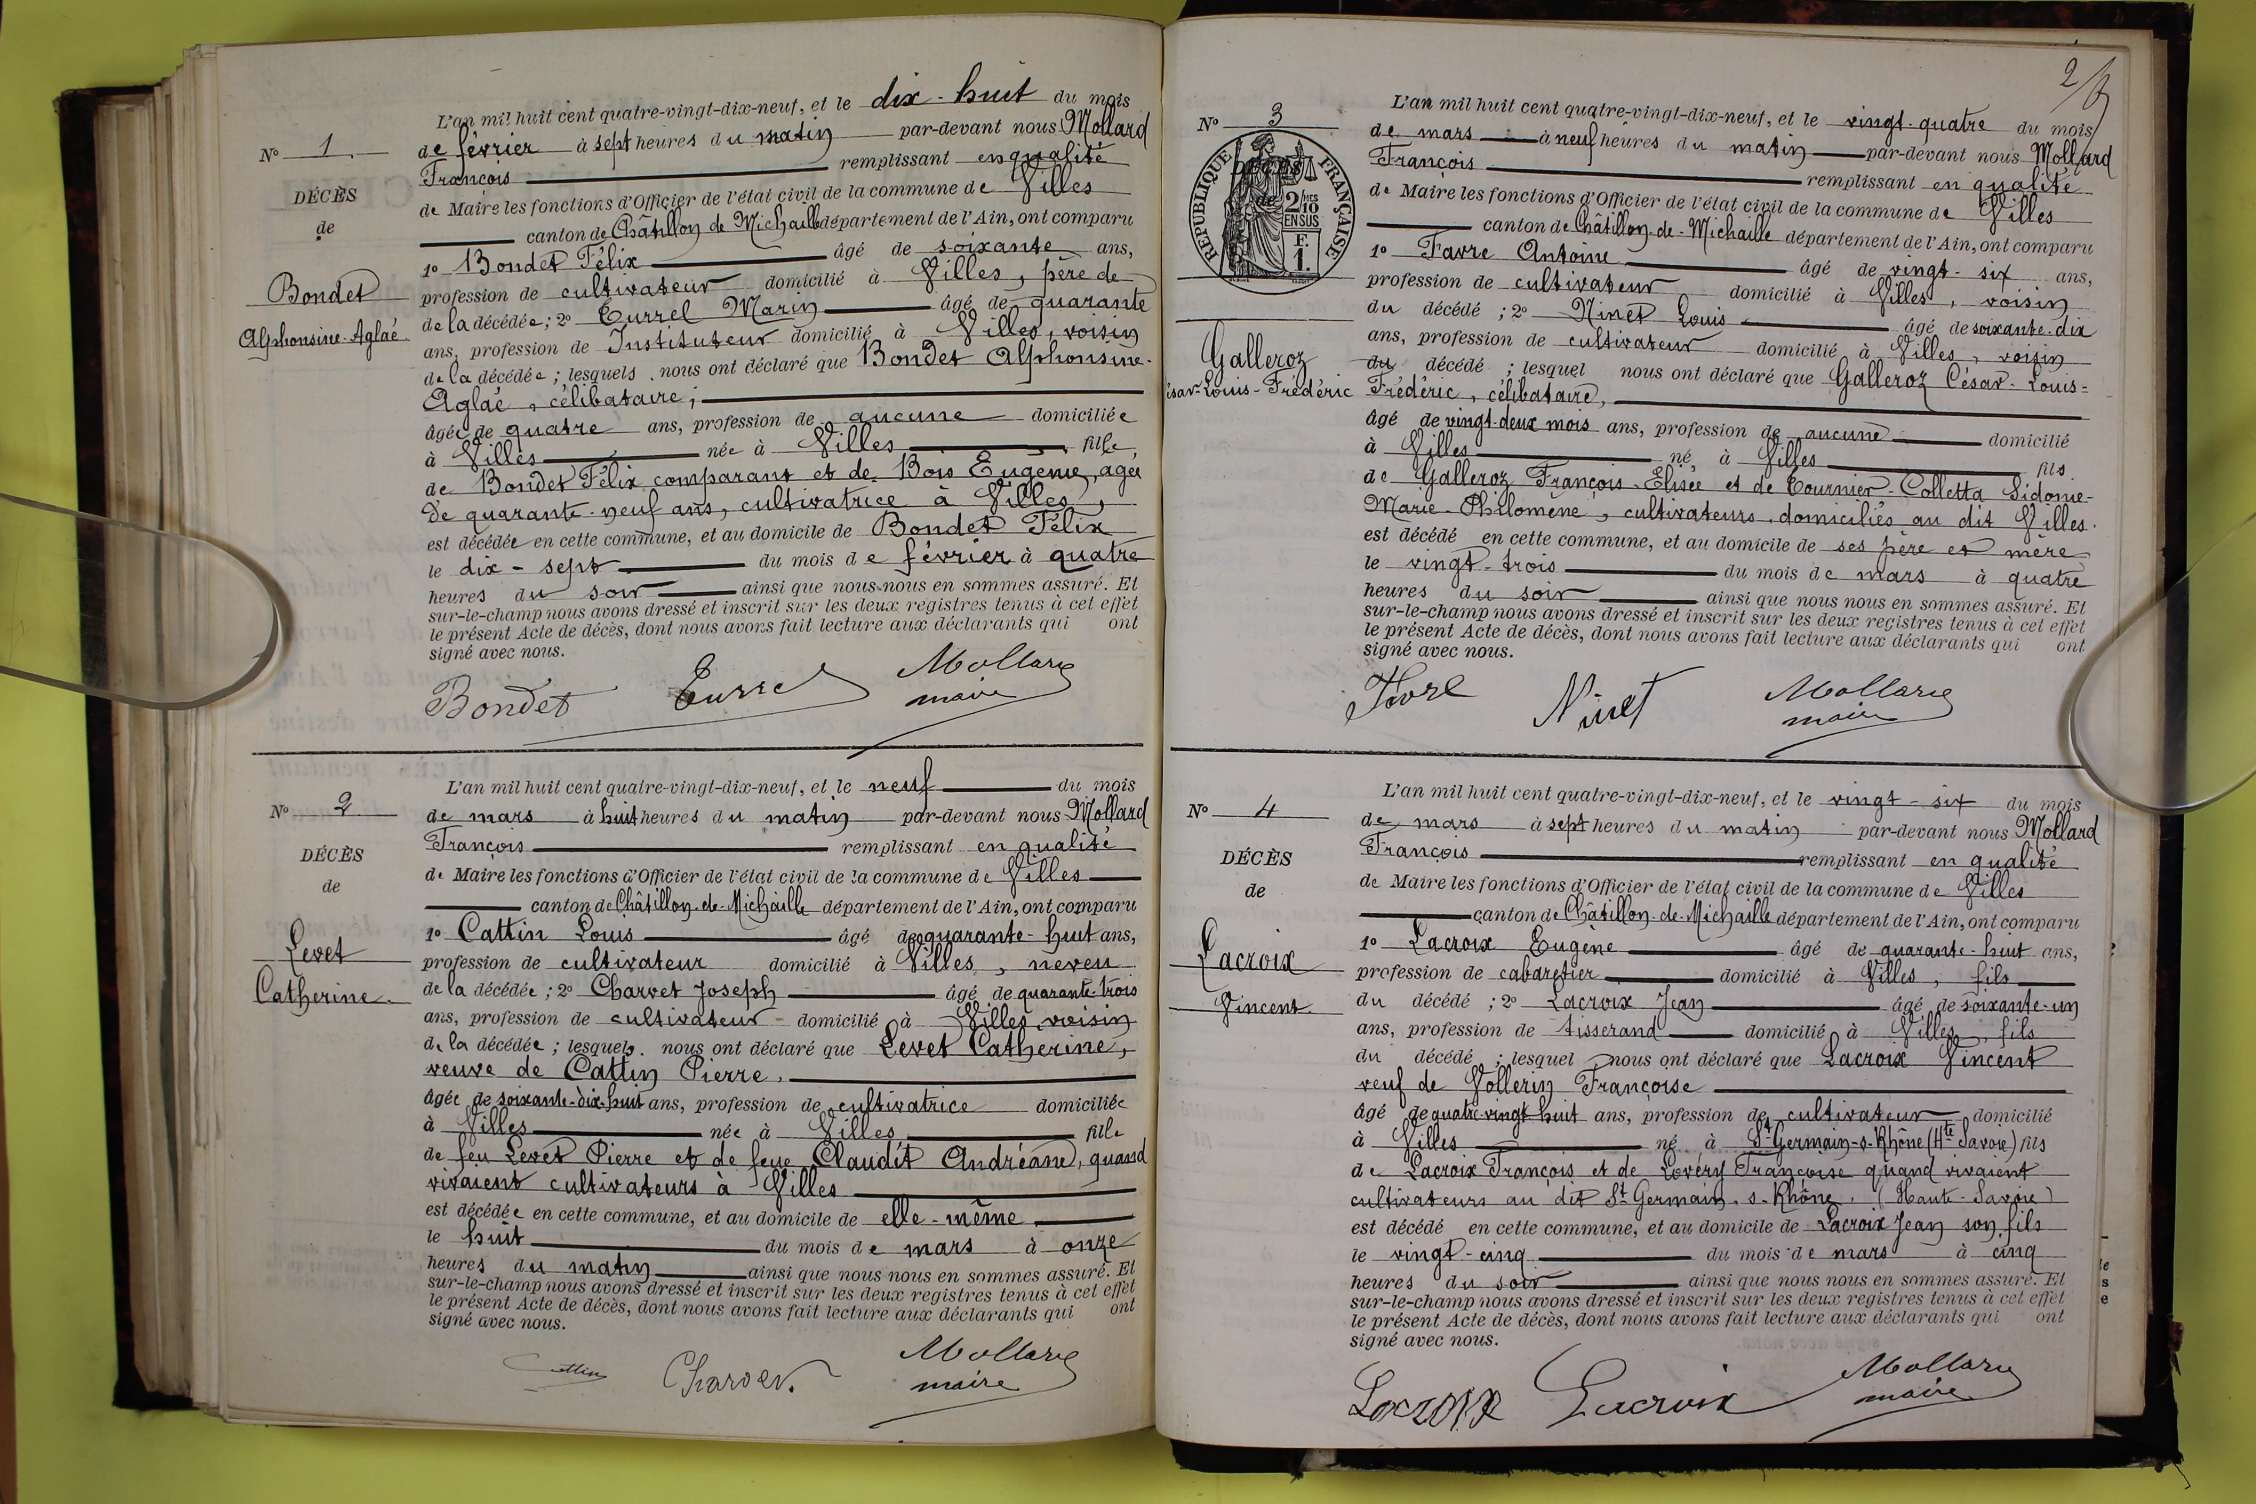 L'an mil huit cent quatre-vingt-dix-neuf, et le dix-huit du mois
de février à sept heures du matin par-devant nous Mollard
François remplissant en qualité
de Maire les fonctions d'Officier de l'état civil de la commune de Villes
canton de Châtillon de Michaille département de l'Ain, ont comparu
1º Bondet Félix âgé de soixante ans,
profession de cultivateur domicilié à Villes, père de
de la décédée; 2º Turrel Marin âgé de quarante
ans, profession de Instituteur domicilié à Villes, voisin
de la décédée; lesquels nous ont déclaré que Bondet Alphonsine-
Aglaé, célibataire;
âgée de quatre ans, profession de aucune domiciliée
à Villes née à Villes fille,
de Bondet Félix comparant et de Bois Eugénie, agée
de quarante-neuf ans, cultivatrice à Villes,
est décédée en cette commune, et au domicile de Bondet Félix
le dix-sept du mois de février à quatre
heures du soir ainsi que nous nous en sommes assuré. Et
sur-le-champ nous avons dressé et inscrit sur les deux registres tenus à cet effet
le présent Acte de décès, dont nous avons fait lecture aux déclarants qui ont
signé avec nous.
Nº 1.
DÉCÈS
de
Bondet
Alphonsine-Aglaé
Bondet Turrel Mollard
maire
L'an mil huit cent quatre-vingt-dix-neuf, et le neuf du mois
de mars à huit heures du matin par-devant nous Mollard
François remplissant en qualité
de Maire les fonctions d'Officier de l'état civil de la commune de Villes
canton de Châtillon-de-Michaille département de l'Ain, ont comparu
1º Cattin Louis âgé de quarante-huit ans,
profession de cultivateur domicilié à Villes, neveu
de la décédée; 2º Charvet Joseph âgé de quarante-trois
ans, profession de cultivateur domicilié à Villes, voisin
de la décédée; lesquels nous ont déclaré que Levet Catherine,
veuve de Cattin Pierre,
âgée de soixante-dix-huit ans, profession de cultivatrice domiciliée
à Villes née à Villes fille
de feu Levet Pierre et de feue Claudit Andréane, quand
vivaient cultivateurs à Villes
est décédée en cette commune, et au domicile de elle-même
le huit du mois de mars à onze
heures du matin ainsi que nous nous en sommes assuré. Et
sur-le-champ nous avons dressé et inscrit sur les deux registres tenus à cet effet
le présent Acte de décès, dont nous avons fait lecture aux déclarants qui ont
signé avec nous.
Nº 2
DÉCÈS
de
Levet
Catherine
Cattin Charvet Mollard
maire
2/
L'an mil huit cent quatre-vingt-dix-neuf, et le vingt-quatre du mois
de mars à neuf heures du matin par-devant nous Mollard
François remplissant en qualité
de Maire les fonctions d'Officier de l'état civil de la commune de Villes
canton de Châtillon-de-Michaille département de l'Ain, ont comparu
1º Favre Antoine âgé de vingt-six ans,
profession de cultivateur domicilié à Villes, voisin
du décédé; 2º Ninet Louis âgé de soixante-dix
ans, profession de cultivateur domicilié à Villes, voisin
du décédé; lesquel nous ont déclaré que Galleroz César-Louis-
Frédéric, célibataire,
âgé de vingt-deux mois ans, profession de aucune domicilié
à Villes né, à Villes fils
de Galleroz François-Elisée et de Tournier-Colletta Sidonie-
Marie-Philomène, cultivateurs domiciliés au dit Villes.
est décédé en cette commune, et au domicile de ses père et mère
le vingt-trois du mois de mars à quatre
heures du soir ainsi que nous nous en sommes assuré. Et
sur-le-champ nous avons dressé et inscrit sur les deux registres tenus à cet effet
le présent Acte de décès, dont nous avons fait lecture aux déclarants qui ont
signé avec nous.
Nº 3
DÉCÈS
de
REPUBLIQUE FRANÇAISE
2/10
EN SUS
F.
1.
Galleroz
ésar-Louis-Frédéric
Favre Ninet Mollard
maire
L'an mil huit cent quatre-vingt-dix-neuf, et le vingt-six du mois
de mars à sept heures du matin par-devant nous Mollard
François remplissant en qualité
de Maire les fonctions d'Officier de l'état civil de la commune de Villes
canton de Châtillon-de-Michaille département de l'Ain, ont comparu
1º Lacroix Eugène âgé de quarante-huit ans,
profession de cabaretier domicilié à Villes, fils
du décédé; 2º Lacroix Jean âgé de soixante-un
ans, profession de tisserand domicilié à Villes, fils
du décédé; lesquel nous ont déclaré que Lacroix Vincent
veuf de Vollerin Françoise
âgé de quatre-vingt-huit ans, profession de cultivateur domicilié
à Villes né à St Germain-s-Rhône (Hte Savoie) fils
de Lacroix François et de Lovéry Françoise quand vivaient
cultivateurs au dit St Germain-s-Rhône, (Haute-Savoie)
est décédé en cette commune, et au domicile de Lacroix Jean son fils
le vingt-cinq du mois de mars à cinq
heures du soir ainsi que nous nous en sommes assuré. Et
sur-le-champ nous avons dressé et inscrit sur les deux registres tenus à cet effet
le présent Acte de décès, dont nous avons fait lecture aux déclarants qui ont
signé avec nous.
Nº 4
DÉCÈS
de
Lacroix
Vincent
Lacroix Lacroix Mollard
maire